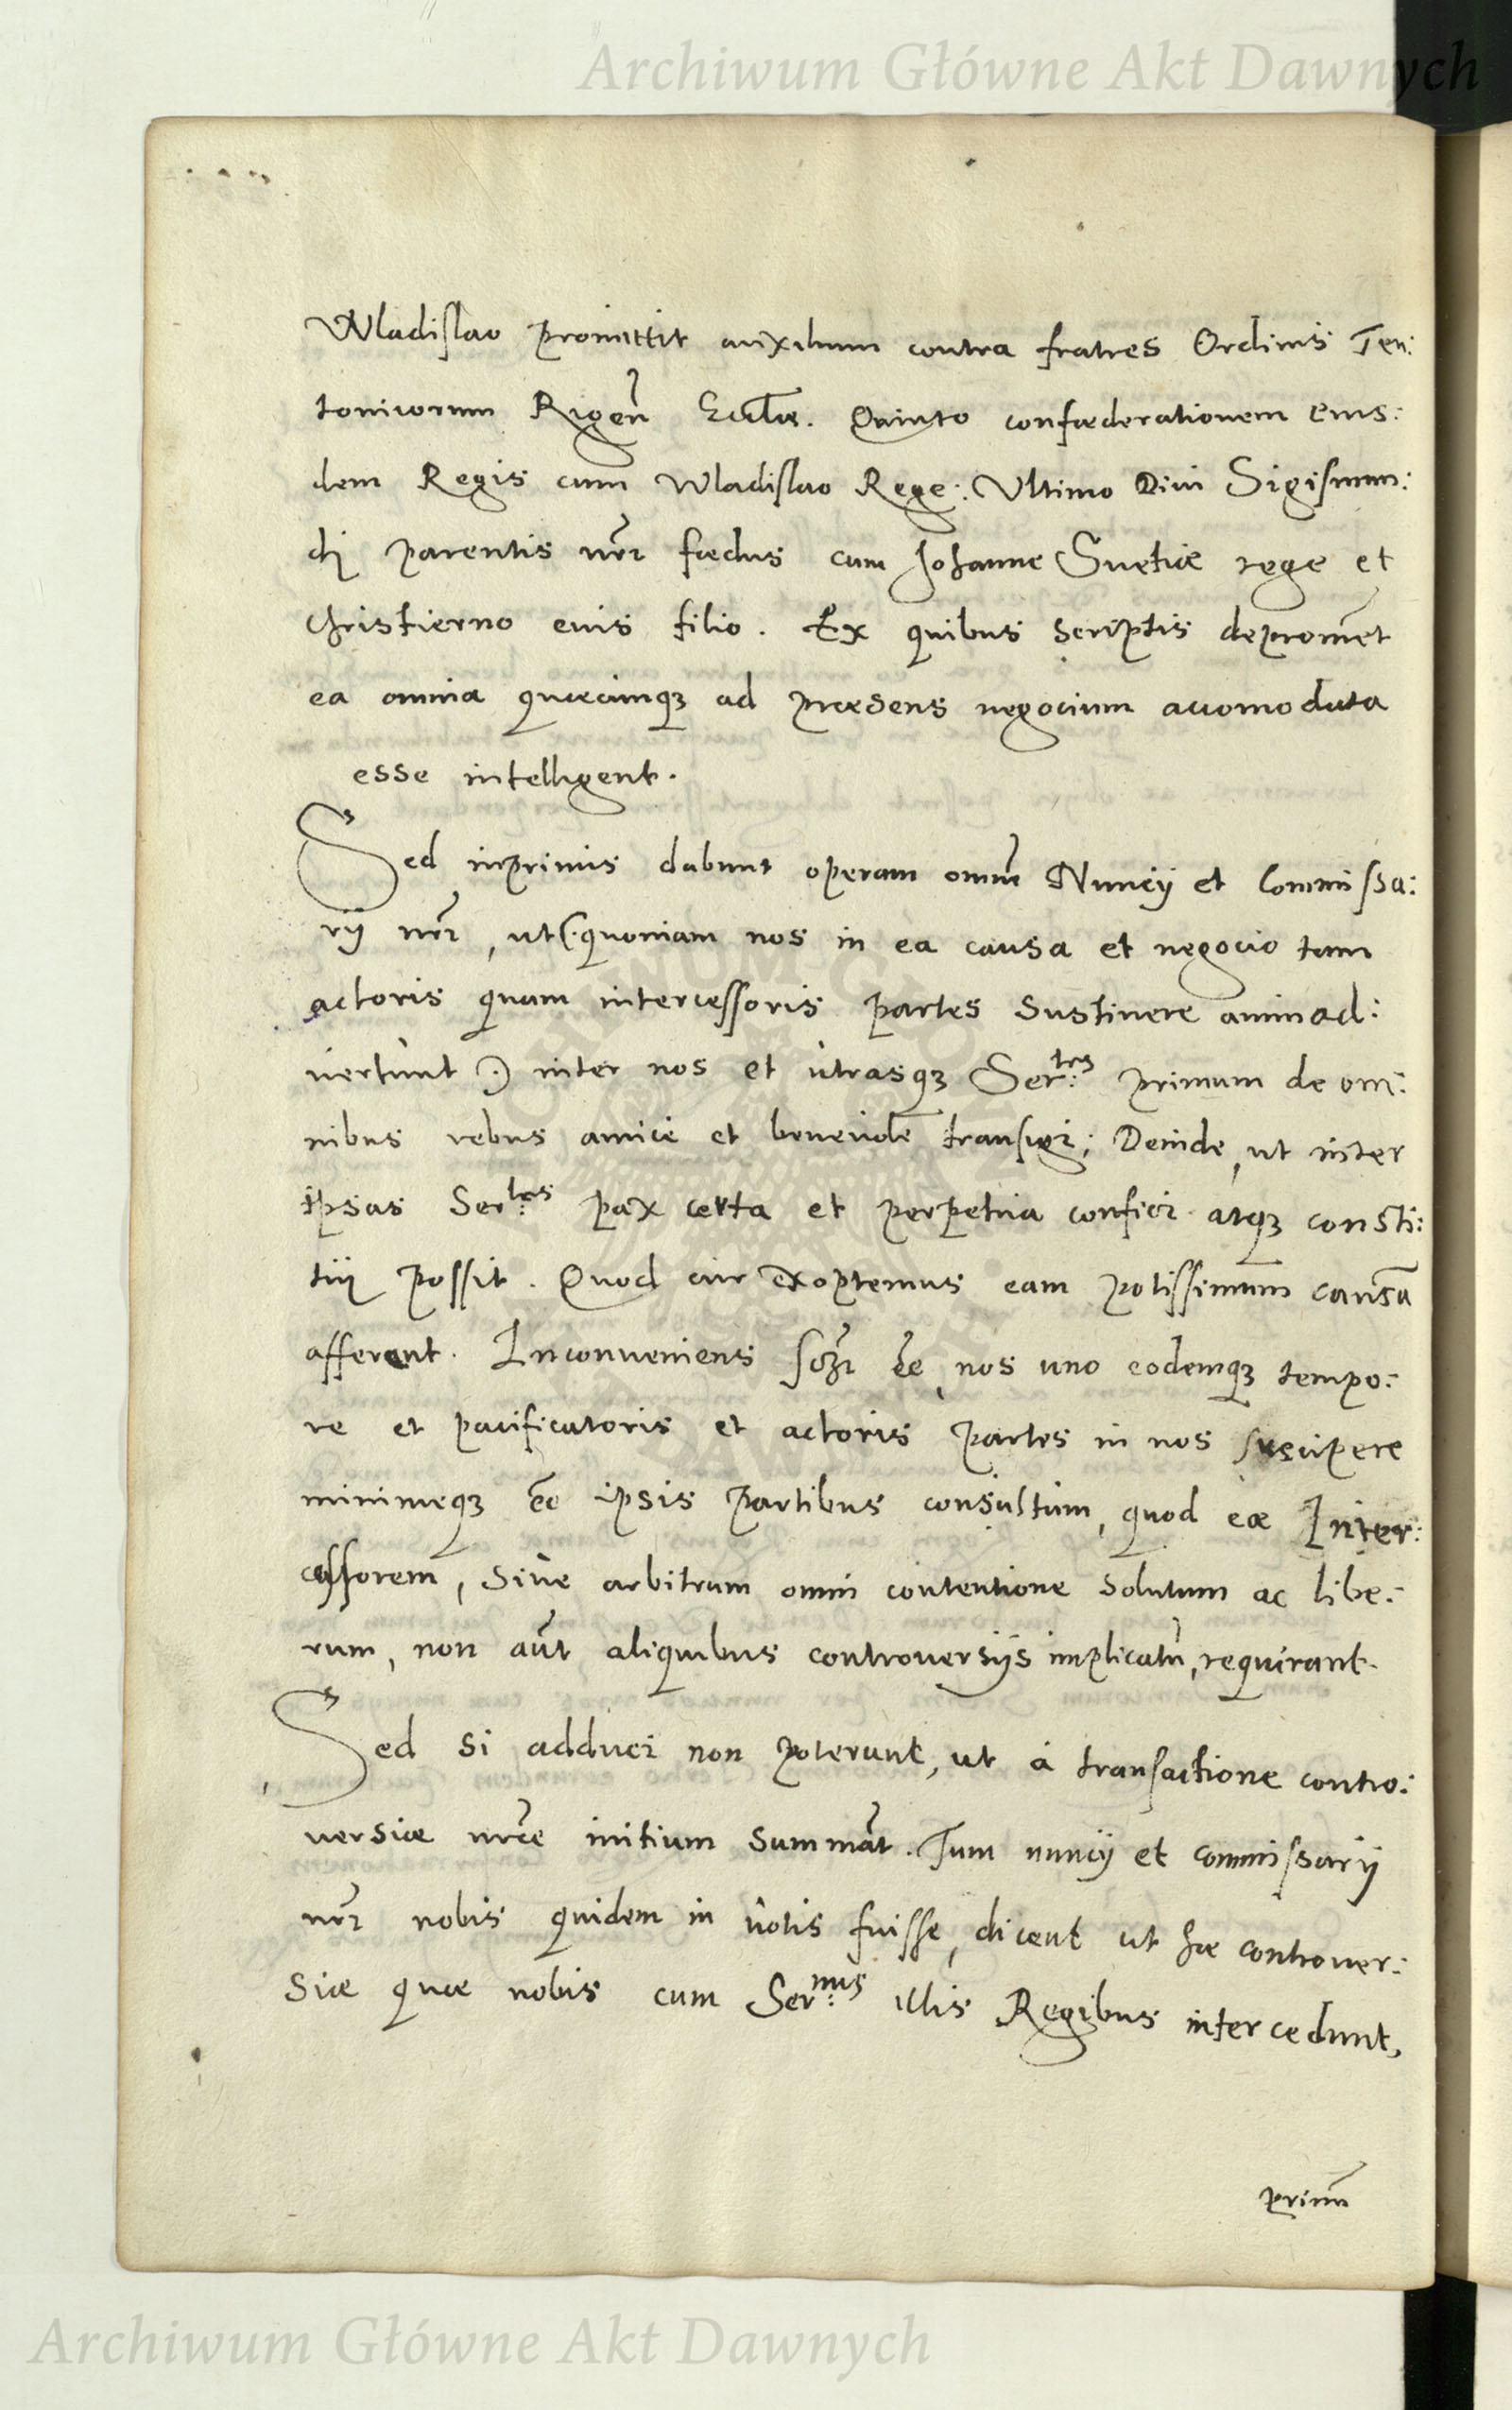 Archiwum Główne Akt Dawnych
Wladislao promittit auxilium contra fratres Ordinis Teu:
tonicorum Rigen̄ Eccl̄ae. Quinto confœderationem eius:
dem Regis cum Wladislao Rege: Vltimo Diui Sigismun:
dj parentis nr̄i fœdus cum Johanne Suetiæ rege et
Christierno eius filio. Ex quibus scriptis depromēt
ea omnia quæcunqꝫ ad præsens negocium accomodata
esse intelligent.
Sed inprimis dabunt operam omnē Nuncij et Commissa:
rij nr̄i, ut (:quoniam nos in ea causa et negocio tam
actoris quam intercessoris partes sustinere animad:
uertunt:) inter nos et utrasqꝫ Ser:tes primum de om:
nibus rebus amice et beneuole transigi; Deinde, ut inter
ipsas Ser:tes pax certa et perpetua confici atqꝫ consti:
tuj possit. Quod cur exoptemus eam potissimum causā
afferent. Inconueniens scꝫ ēe, nos uno eodemqꝫ tempo:
re et pacificatoris et actoris partes in nos suscipere
minimeqꝫ ēe ipsis partibus consultum, quod eæ Inter:
cessorem, siue arbitrum omni contentione solutum ac libe:
rum, non aūt aliquibus controuersijs implicatū, requirant.
Sed si adduci non poterunt, ut à transactione contro:
uersiæ nr̄æ initium summāt. Tum nuncij et commissarij
nr̄i nobis quidem in uotis fuisse, dicent ut hæ controuer:
siæ quæ nobis cum Ser:mis illis Regibus intercedunt,
primū
Archiwum Główne Akt Dawnych